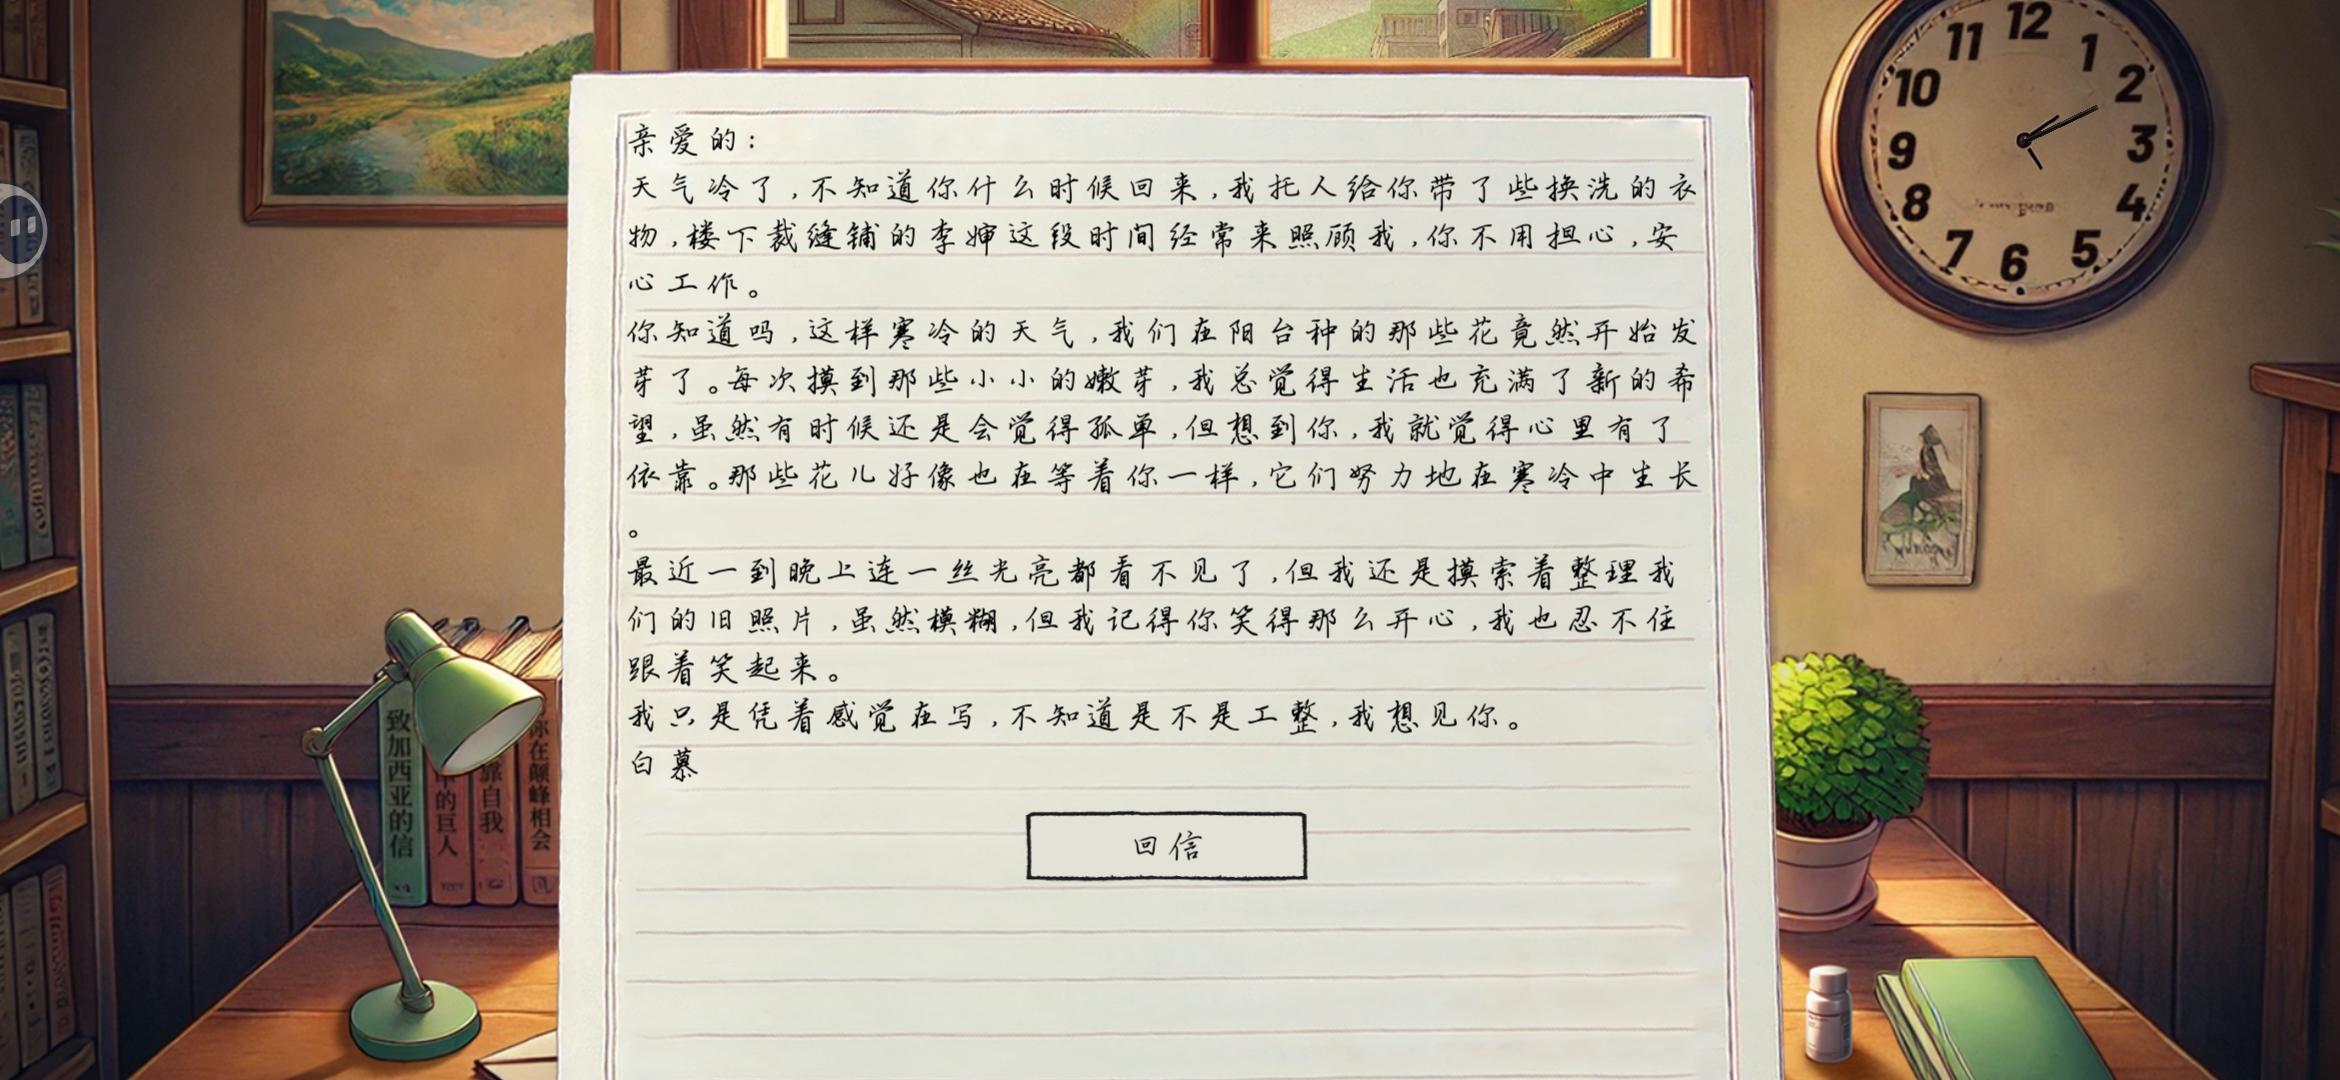 12
11
1
10
2
9
3
8
4
7
5
6
亲爱的：
天气冷了，不知道你什么时候回来，我托人给你带了些换洗的衣
物，楼下裁缝铺的李婶这段时间经常来照顾我，你不用担心，安
心工作。
你知道吗，这样寒冷的天气，我们在阳台种的那些花竟然开始发
芽了。每次摸到那些小小的嫩芽，我总觉得生活也充满了新的希
望，虽然有时候还是会觉得孤单，但想到你，我就觉得心里有了
依靠。那些花儿好像也在等着你一样，它们努力地在寒冷中生长
。
最近一到晚上连一丝光亮都看不见了，但我还是摸索着整理我
们的旧照片，虽然模糊，但我记得你笑得那么开心，我也忍不住
跟着笑起来。
我只是凭着感觉在写，不知道是不是工整，我想见你。
白慕
回信
致加西亚的信
中的巨人
靠自我
你在颠峰相会